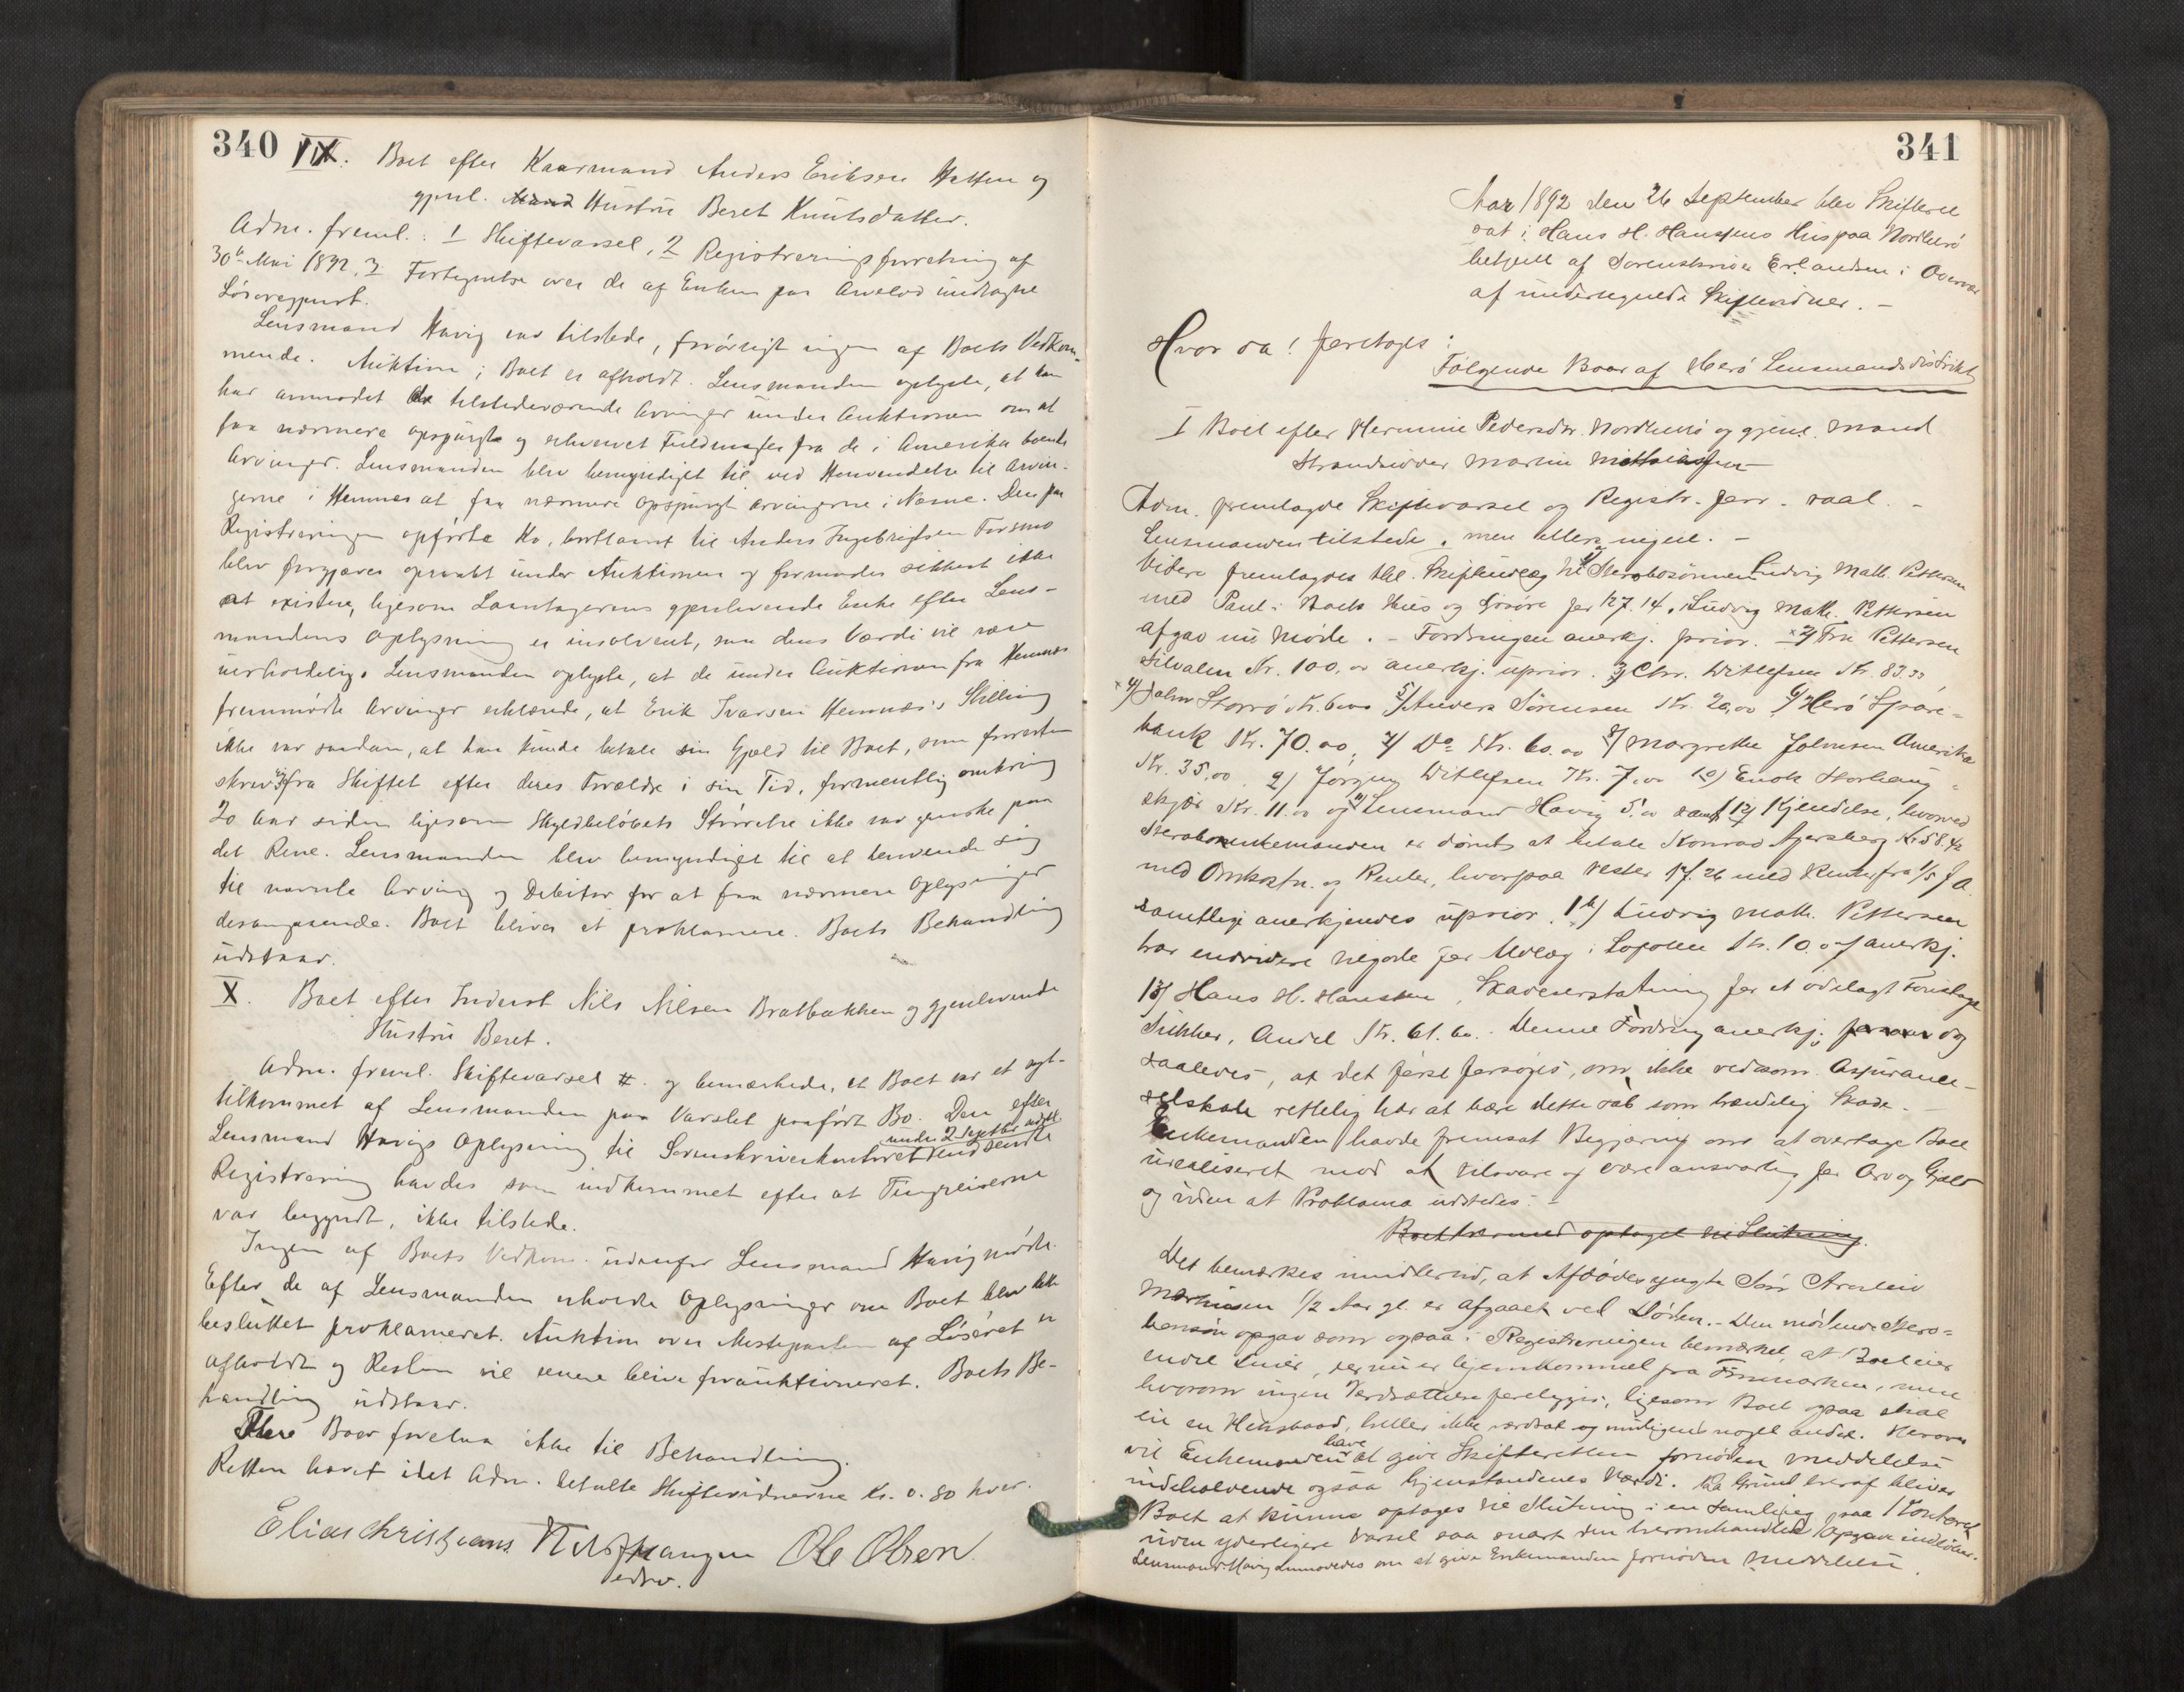 340
IX. Boet efter Kaarmand Anders Eriksen Hatten og
gjenl. Hustru Beret Knutsdatter.
Adm. freml.: 1 Skiftevarsel, 2 Registreringsforretning af
30te Mai 1892, 3 Fortegnelse over de af Enken paa Arvelod indtagne
Lösöregjenst.
Lensmand Havig var tilstede, forövrigt ingen af Boets Vedkom-
mende. Auktion i Boet er afholdt. Lensmanden oplyste, at han
har anmodet de tilstedeværende Arvinger under Auktionen om at
faa nærmere opspurgt og erhvervet Fuldmagter fra de i Amerika boende
Arvinger. Lensmanden blev bemyndiget til ved Henvendelse til Arvin-
gerne i Hemnes at faa nærmere opspurgt Arvingerne i Næsne. Den paa
Registreringen opförte Ko, bortlaant til Anders Ingebrigtsen Forsmo
blev forgjæves opraabt under Auktionen og formodes sikkert ikke
at existere, ligesom Laantagerens gjenlevende Enke efter Lens-
mandens Oplysning er insolvent, saa dens Værdi vil være
uerholdelig. Lensmanden oplyste, at de under Auktionen fra Hemnes
fremmödte Arvinger erklærede, at Erik Ivarsen Hemnæs's Stilling
ikke var saadan, at han kunde betale sin Gjæld til Boet, som forresten
skrev sig fra Skiftet efter deres Forældre i sin Tid, formentlig omkring
20 Aar siden ligesom Skyldbelöbets Störrelse ikke var ganske paa
det Rene. Lensmanden blev bemyndiget til at henvende sig
til nævnte Arving og Debitor for at faa nærmere Oplysninger
desangaaende. Boet bliver at proklamere. Boets Behandling
udstaar.
X. Boet efter Inderst Nils Nilsen Bratbakken og gjenlevende
Hustru Beret.
Adm. freml. Skiftevarsel #. og bemærkede, at Boet var et nyt-
tilkommet af Lensmanden paa Varslet paafört Bo. Den efter
Lensmand Havigs Oplysning til Sorenskriverkontoret under 2 Septbr indsendte
Registrering havdes som indkommet efter at Tingreiserne
var begyndt, ikke tilstede.
Ingen af Boets Vedkom. udenfor Lensmand Havig mödte.
Efter de af Lensmanden erholdte Oplysninger om Boet blev dette
besluttet proklameret. Auktion over Mesteparten af Lösöret er
afholdt og Resten vil senere blive forauktioneret. Boets Be-
handling udstaar.
Flere Boer forelaa ikke til Behandling.
Retten hævet idet Adm. betalte Skiftevidnerne Kr. 0.80 hver.
Elias Christians Ole Olsen
edsv.
341
Aar 1892 den 26 September blev Skifteret
sat i Hans H. Hansens Hus paa Nordherö
betjent af Sorenskriver Erlandsen i Overvær
af undertegnede Skiftevidner. -
Hvor da! foretoges:
Fölgende Boer af Herö Lensmandsdistrikt
I Boet efter Hermine Pedersdtr. Nordherö og gjenl. Mand
Strandsidder Martin Mathiassen
Adm. fremlagde Skiftevarsel og Registr. forr. saal. -
Lensmanden tilstede, men ellers ingen. -
Videre fremlagdes Skiftevarsel til 1) Sterbosönnen Ludvig Math. Pettersen
med Pant i Boets Hus og Lösöre for 127.14. Ludvig Math. Pettersen
afgav nu Möde. - Fordringen anerkj. prior. 2) Fru Pettersen
Silvalen Kr. 100.00 anerkj. uprior. 3) Chr. Ditlefsen Kr. 83.33,
4) John Storrö Kr. 6.00 5) Anders Sörensen Kr. 20,00 6) Herö Spare-
bank Kr. 70.00, 7) Do Kr. 60.00 8) Margrethe Johnsen Amerika
Kr. 35,00 9) Jörgen Ditlefsen Kr. 7,00 10) Enok Storhaug-
skjær Kr. 11.00 og 11) Lensmand Havig 5.00 samt 12) Kjendelse, hvorved
Sterboenkemanden er dömt at betale Konrad Agersborg Kr 58.42
med Omkostn. og Renter, hvorpaa rester 17.26 med Renter fra 1/5 f A.
samtlige anerkjendes uprior. Ludvig Math. Pettersen
har endvidere tilgode for Udlæg i Lofoten Kr. 10.00 anerkj.
13) Hans H. Hanssen, Skadeserstatning for et ödelagt
Andel Kr. 61.60. Denne Fordring anerkj. og
saaledes, at det först forsöges, om ikke vedkom. Assurance-
selskab rettelig har at bære dette Tab som hændelig Skade. -
Enkemanden havde fremsat Begjæring om at overtage Boet
urealiseret mod at tilsvare og være ansvarlig for Arv og Gjæld
og uden at Proklama udstedes. -
Boet dermed optaget til Slutning.
Det bemærkes imidlertid, at Afdödes yngste Sön
Martinsen 1/2 Aar gl. er afgaaet ved Döden. - Den mödende Sterbo-
sön opgav som ogsaa i Registreringen bemærket, at Boet eier
endel der nu er hjemkommet fra Finmarken, men
hvorom ingen Værdsættelse foreligger, ligesom Boet ogsaa skal
eie en heller ikke værdsat og muligens noget andet. Herover
vil Enkemanden have at give Skifteretten fornöden Meddelelse
indeholdende ogsaa Gjenstandenes Værdi. Paa Grund heraf bliver
Boet at kunne optages til Slutning i en Samling paa Kontoret
uden yderligere Varsel saa snart den heromhandlede Opgave indlöber.
Lensmand Havig anmodedes om at give Enkemanden fornöden Meddelelse.